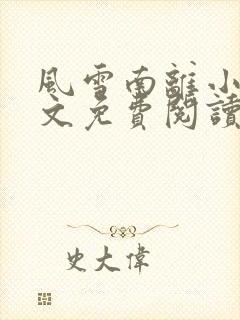 風雪南離小
文免費閱讀
史大偉